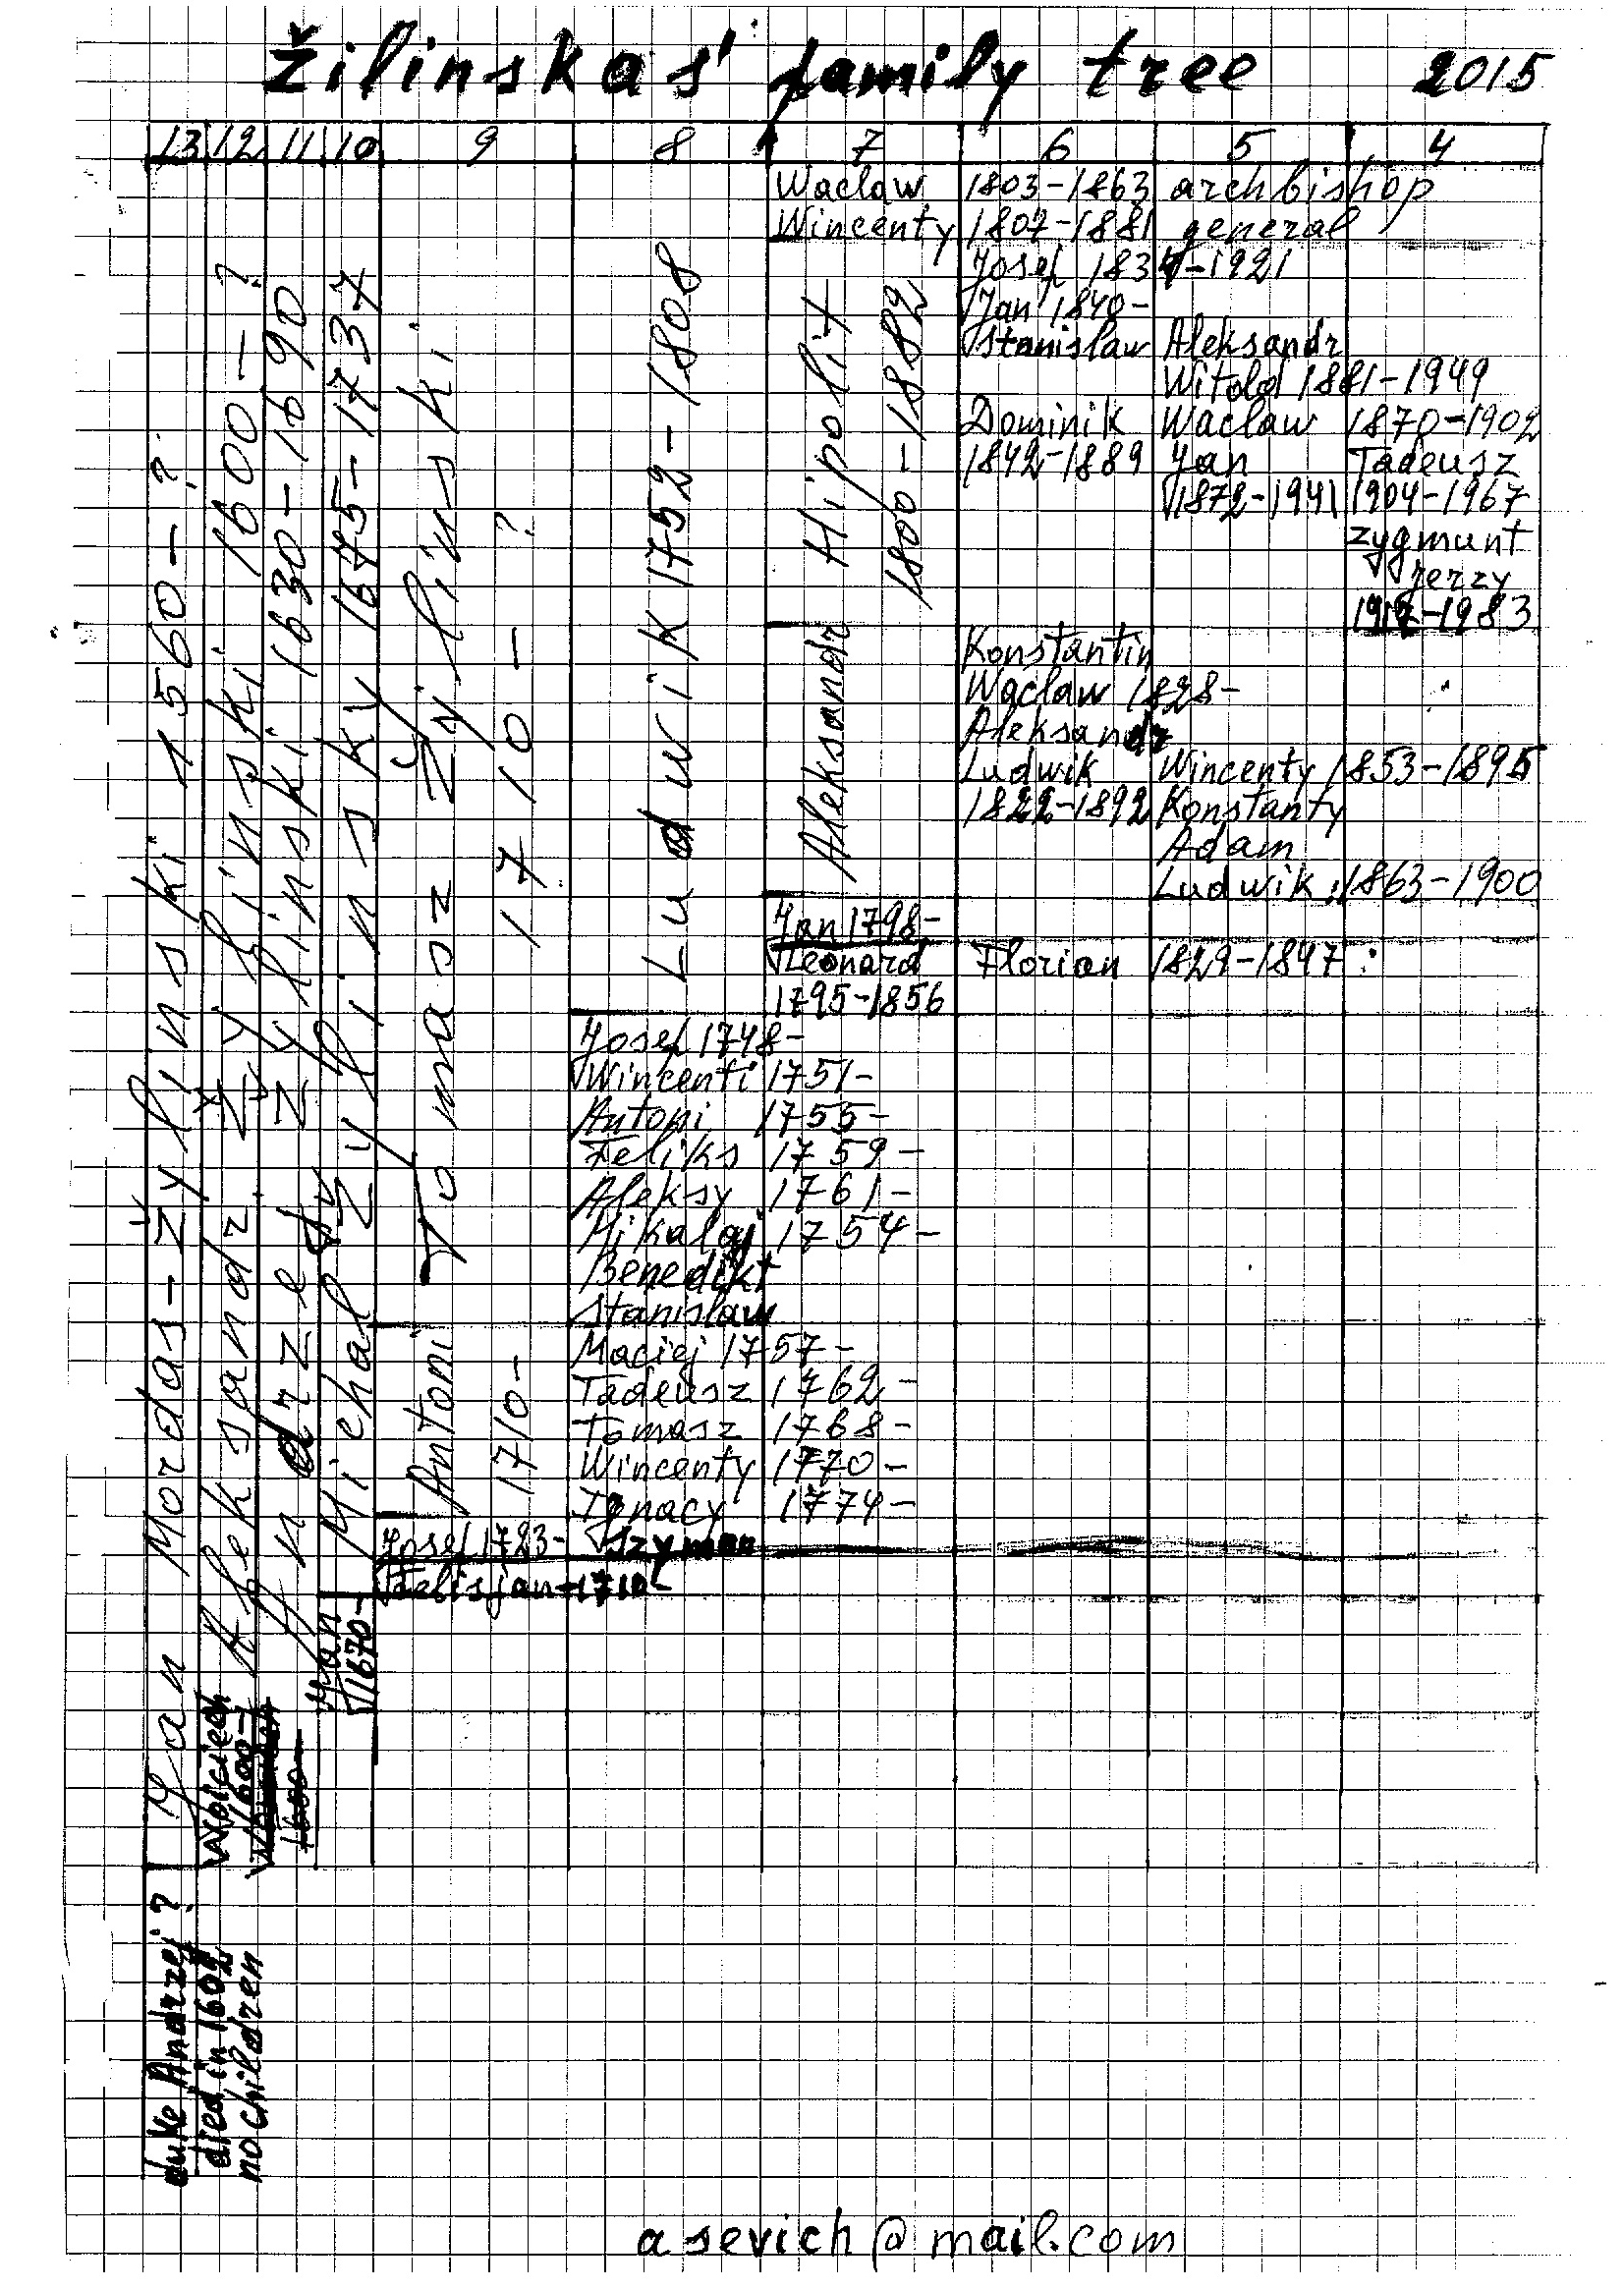 Žilinskas' family tree 2015
13 12 11 10 9 8 7 6 5 4
Jan Mordas-Žylinski 1560-?
duke Andrzej ?
died in 1602
no children
Aleksandr Žylinski 1600-?
Woiciech
1600-
Andrzej Žylinski 1630-1690
Michal Žylinsky 1675-1737
Jan
1670-
Tomasz Žylinski
1710-?
Antoni
1710-
Josef 1723-
Felisjan-1710-
Ludwik 1752-1808
Josef 1748-
Wincenti 1751-
Antoni 1755-
Feliks 1759-
Aleksy 1761-
Mikalaj 1754-
Benedikt
Stanislaw
Maciej 1757-
Tadeusz 1762-
Tomasz 1768-
Wincenty 1770-
Ignacy 1774-
Szymon
Waclaw 1803-1863 archbishop
Wincenty 1807-1881 general
Hipolit
1800-1882
Josef 1834-1921
Jan 1840-
Stanislaw Aleksandr
Witold 1881-1949
Dominik Waclaw 1870-1902
1842-1889 Jan Tadeusz
1872-1941 1904-1967
Zygmunt
Jerzy
1912-1983
Aleksandr
Konstantin
Waclaw 1828-
Aleksandr
Ludwik Wincenty 1853-1895
1822-1892 Konstanty
Adam
Ludwik 1863-1900
Jan 1798-
Leonard Florian 1829-1897
1795-1856
asevich@mail.com